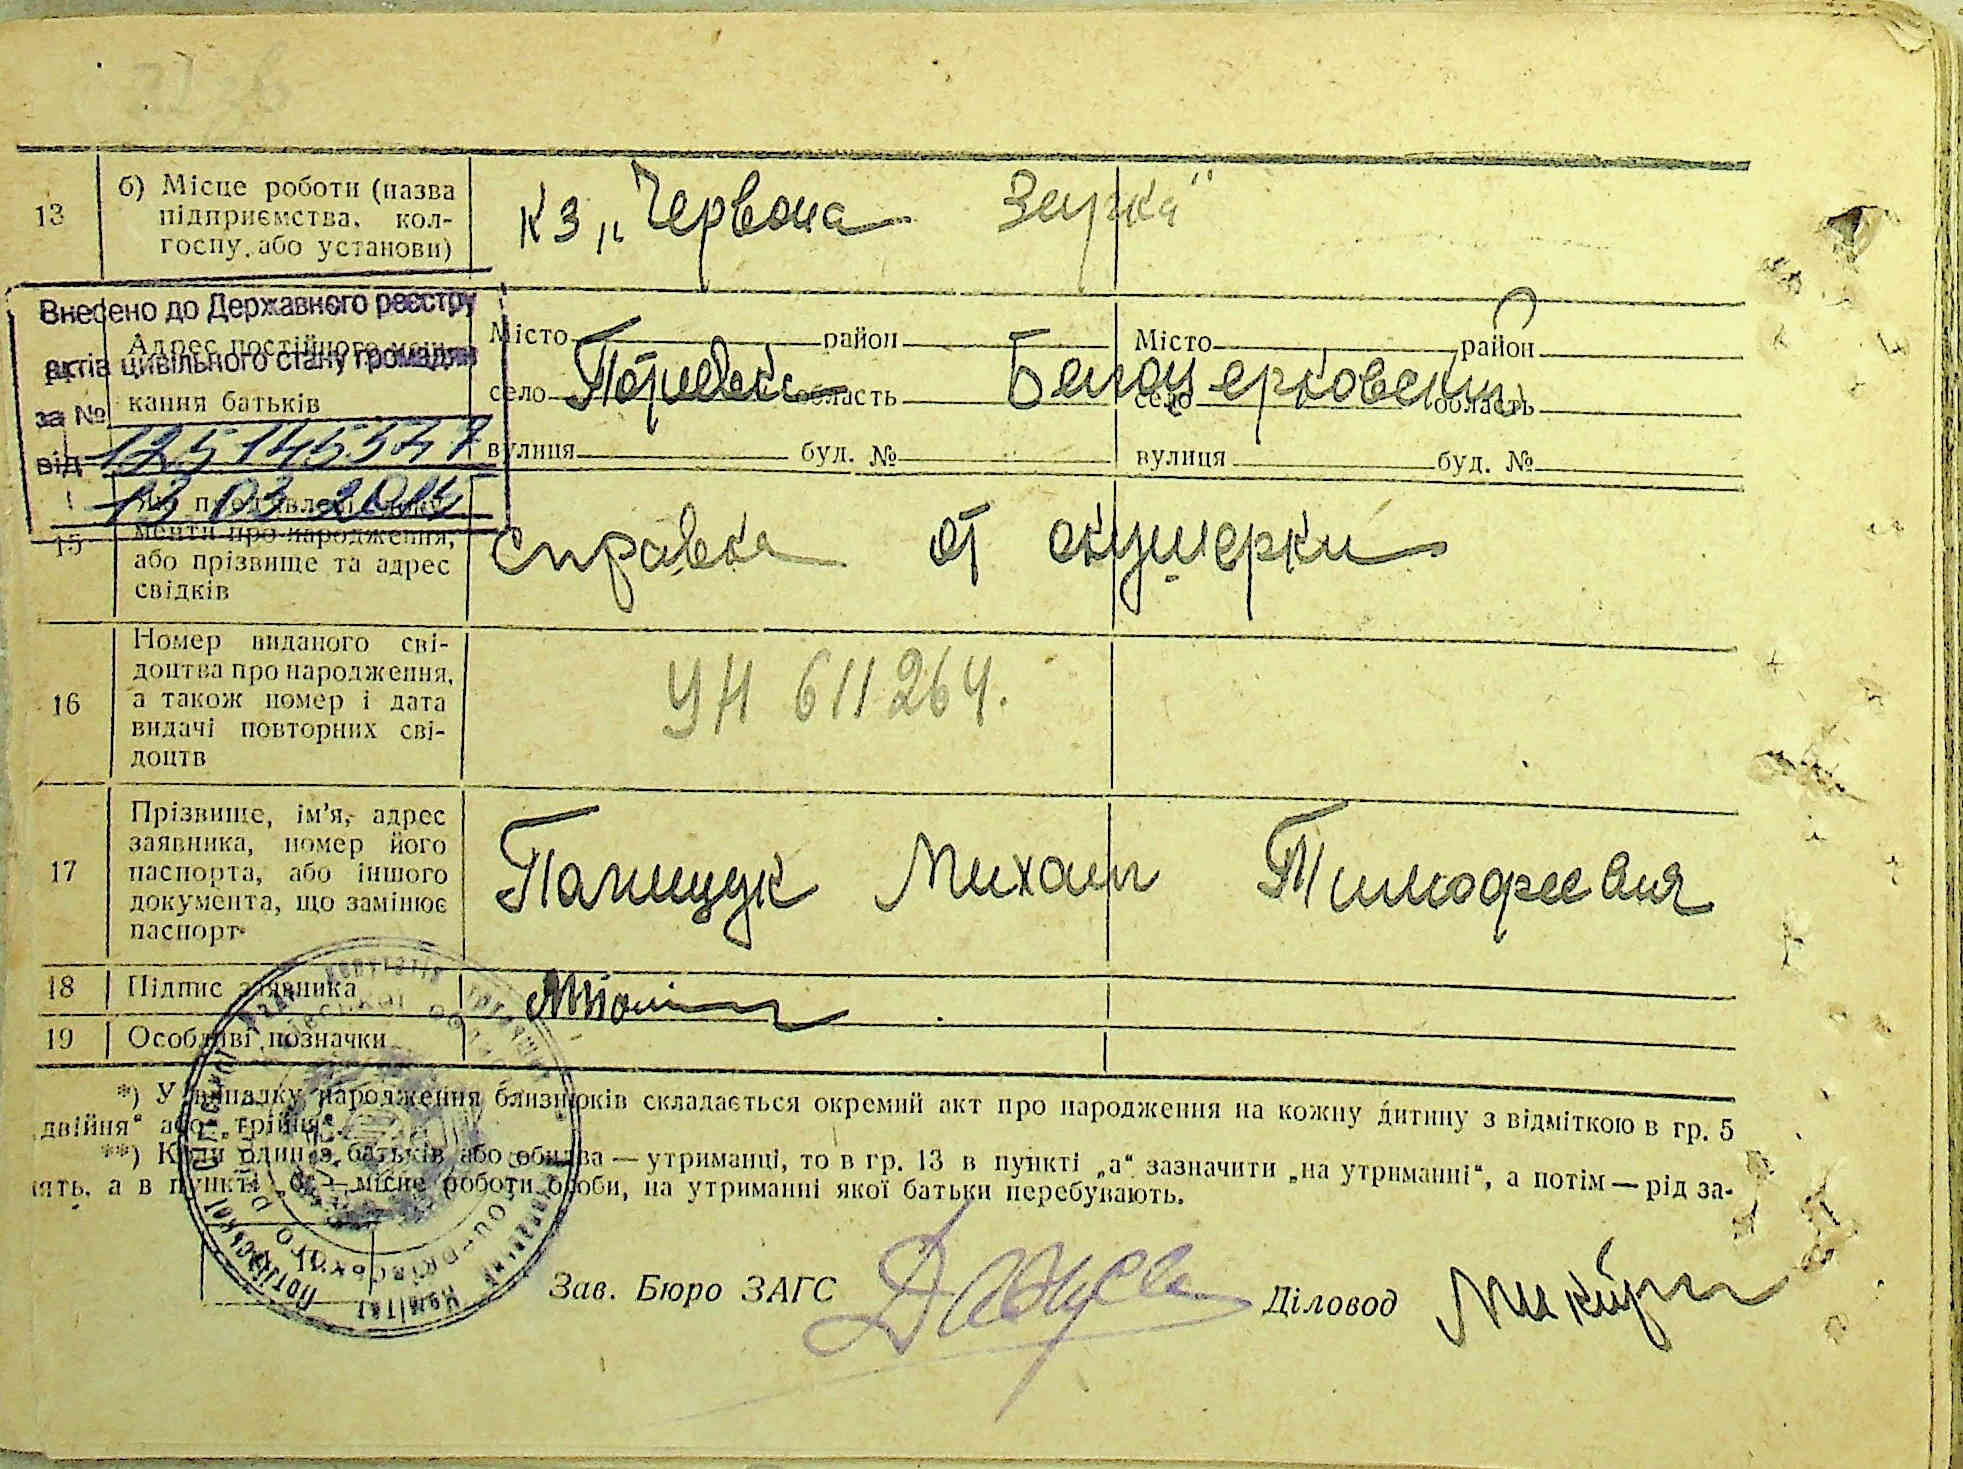 13 б) Місце роботи (назва
підприємства, кол-
госпу, або установи)
кз „Червона Зирка"
Внесено до Державного реєстру
актів цивільного стану громадян
за № 
від 13 03 
Адрес постійного меш-
кання батьків
Місто район Місто район
село область Белоцерковский село область
вулиця буд. № вулиця буд. №
15 менти про народження,
або прізвище та адрес
свідків
справка от акушерки
16 Номер виданого сві-
доцтва про народження,
а також номер і дата
видачі повторних сві-
доцтв
УН 611264.
17 Прізвище, ім'я, адрес
заявника, номер його
паспорта, або іншого
документа, що замінює
паспорт
Полищук Михаил Тимофеевич
18 Підпис заявника
19 Особливі позначки
*) У випадку народження близнюків складається окремий акт про народження на кожну дитину з відміткою в гр. 5
„двійня" або „трійня".
**) Коли один з батьків або обидва — утриманці, то в гр. 13 в пункті „а" зазначити „на утриманні", а потім — рід за-
нять, а в пункті „б" — місце роботи особи, на утриманні якої батьки перебувають.
Зав. Бюро ЗАГС Діловод